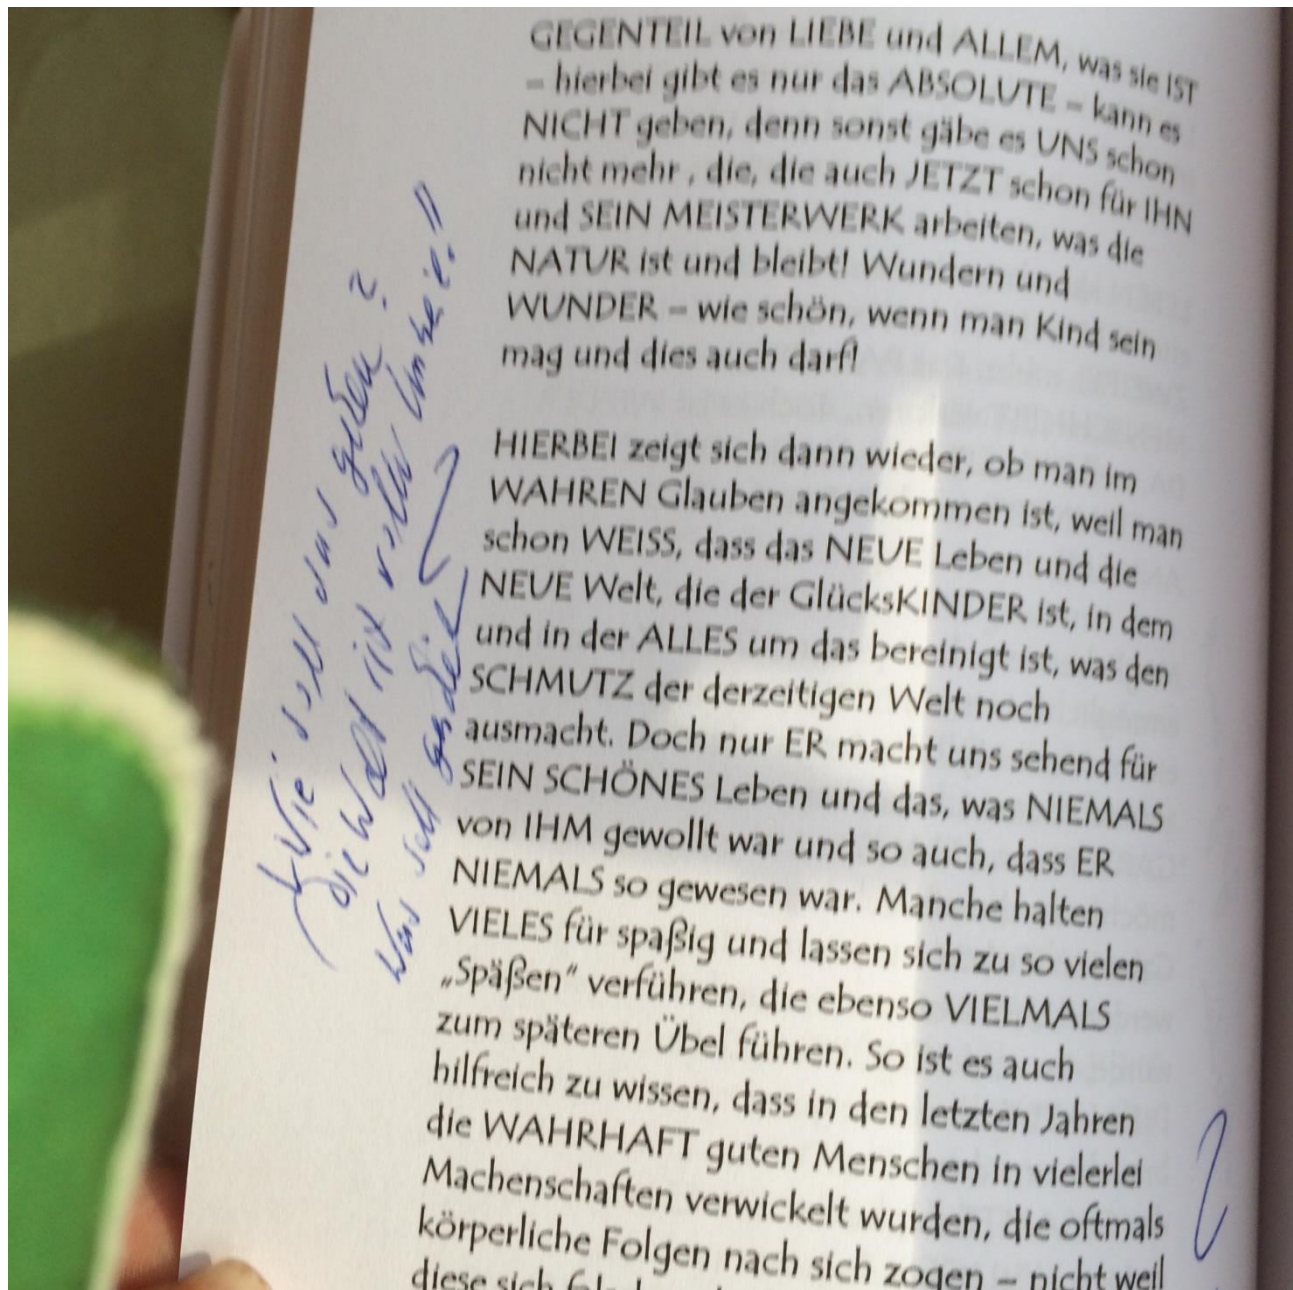 GEGENTEIL von LIEBE und ALLEM, was sie IST
– hierbei gibt es nur das ABSOLUTE – kann es
NICHT geben, denn sonst gäbe es UNS schon
nicht mehr , die, die auch JETZT schon für IHN
und SEIN MEISTERWERK arbeiten, was die
NATUR ist und bleibt! Wundern und
WUNDER – wie schön, wenn man Kind sein
mag und dies auch darf!
HIERBEI zeigt sich dann wieder, ob man im
WAHREN Glauben angekommen ist, weil man
schon WEISS, dass das NEUE Leben und die
NEUE Welt, die der GlücksKINDER ist, in dem
und in der ALLES um das bereinigt ist, was den
SCHMUTZ der derzeitigen Welt noch
ausmacht. Doch nur ER macht uns sehend für
SEIN SCHÖNES Leben und das, was NIEMALS
von IHM gewollt war und so auch, dass ER
NIEMALS so gewesen war. Manche halten
VIELES für spaßig und lassen sich zu so vielen
„Späßen“ verführen, die ebenso VIELMALS
zum späteren Übel führen. So ist es auch
hilfreich zu wissen, dass in den letzten Jahren
die WAHRHAFT guten Menschen in vielerlei
Machenschaften verwickelt wurden, die oftmals
körperliche Folgen nach sich zogen – nicht weil
diese sich
Wie soll das gehen?
die Welt ist voller Unheil!!
Was soll